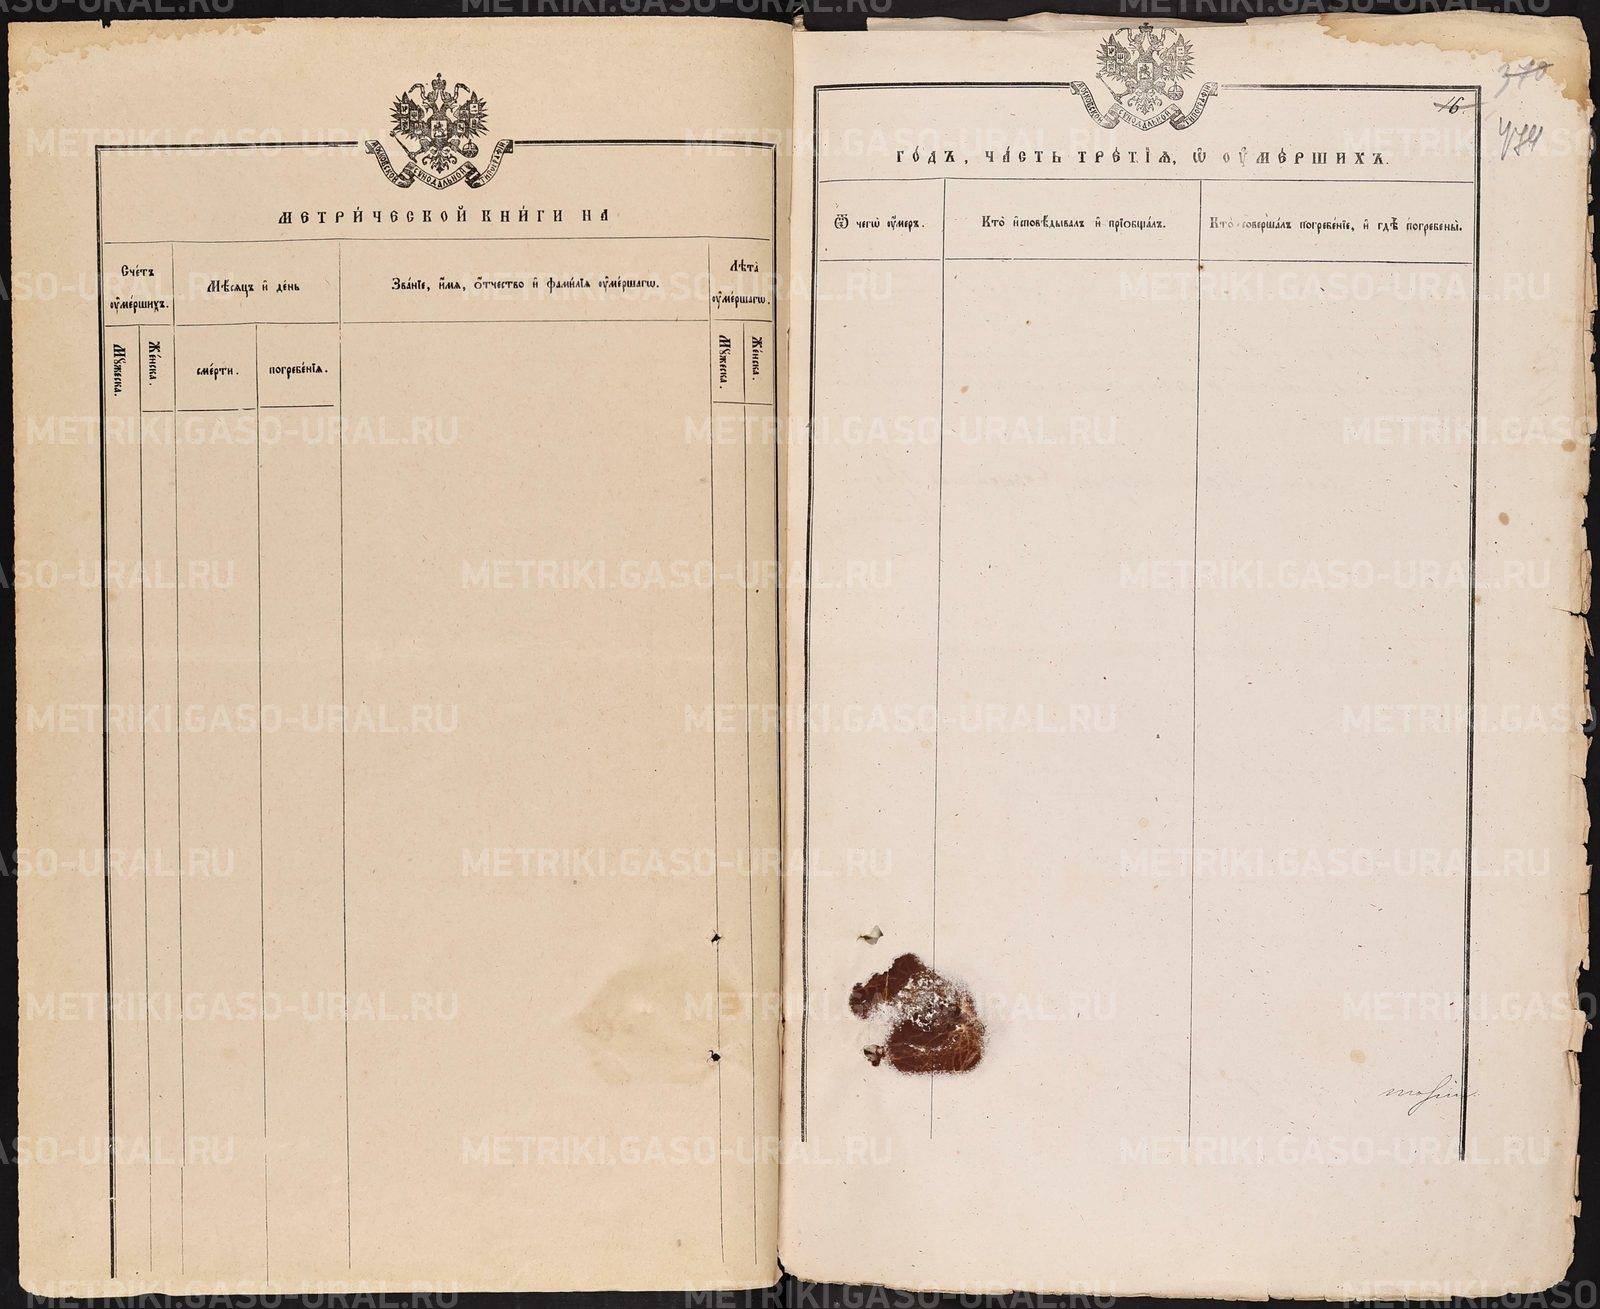 МОСКОВСКОЙ СѴНОДАЛЬНОЙ ТИПОГРАФІИ
МЕТРИ́ЧЕСКОЙ КНИ́ГИ НА
Сче́тъ ᲂу҆ме́ршихъ.
Мѣ́сяцъ и҆ де́нь
Зва́нїе, и҆́мя, ѻ҆́тчество и҆ фами́лїя ᲂу҆ме́ршагѡ.
Лѣта̀ ᲂу҆ме́ршагѡ.
Мꙋ́жеска.
Же́нска.
сме́рти.
погребе́нїя.
Мꙋ́жеска.
Же́нска.
МОСКОВСКОЙ СѴНОДАЛЬНОЙ ТИПОГРАФІИ
370
16.
ГО́ДЪ, ЧА́СТЬ ТРЕ́ТЇЯ, Ѽ ОУ҆МЕ́РШИХЪ.
Ѿ чегѡ̀ ᲂу҆́меръ.
Кто̀ и҆сповѣ́дывалъ и҆ прїѡбща́лъ.
Кто̀ соверша́лъ погребе́нїе, и҆ гдѣ̀ погребены̀.
METRIKI.GASO-URAL.RU